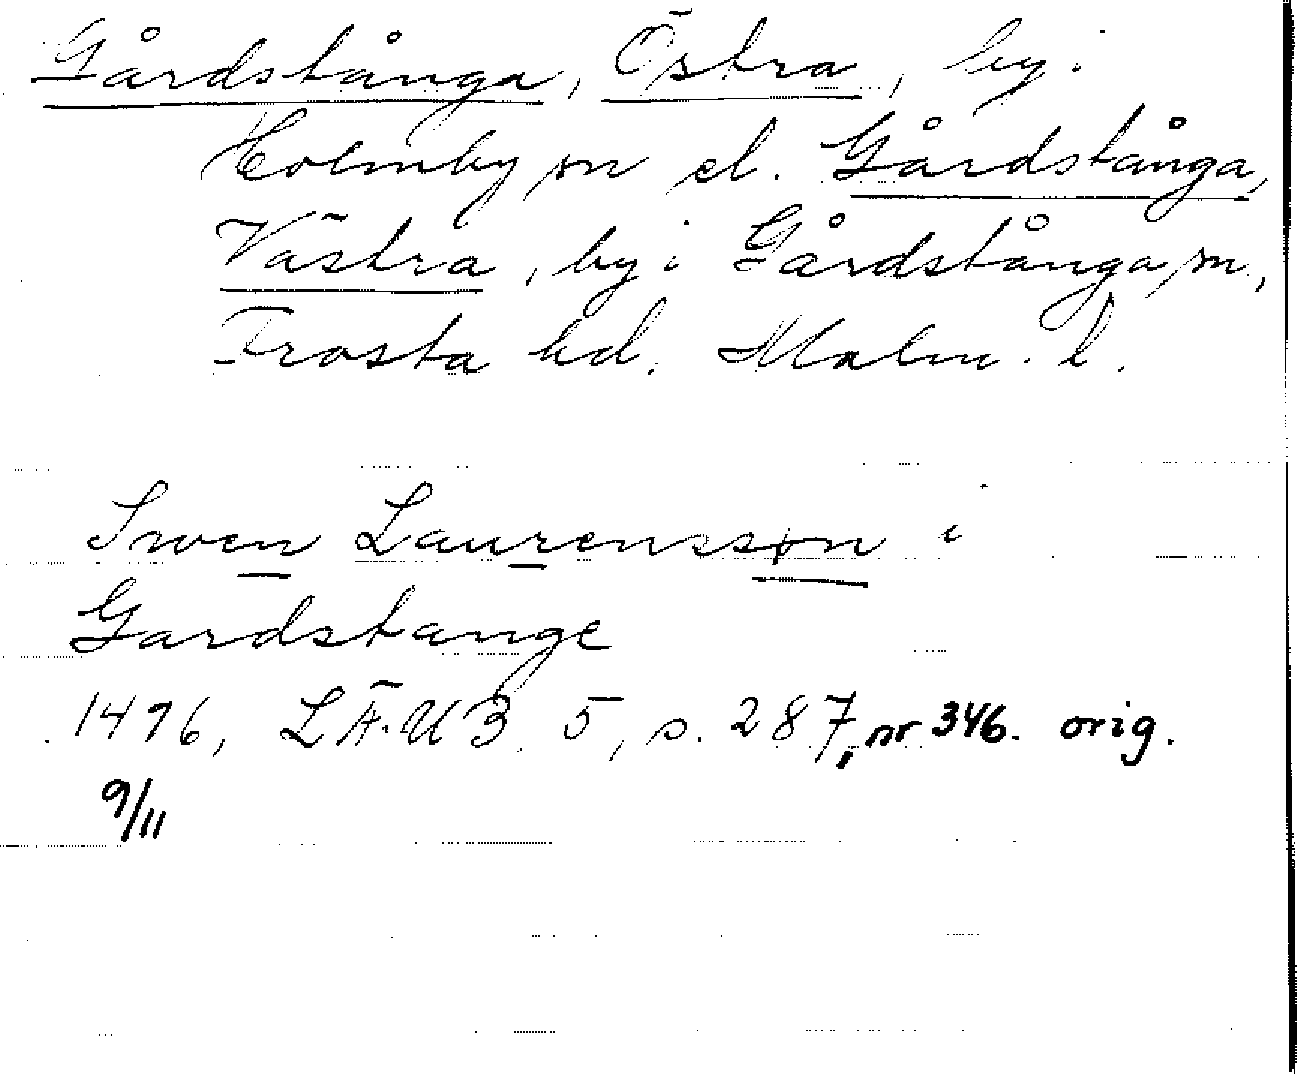 Gårdstånga, Östra, by i
Holmby sn el. Gårdstånga,
Västra, by i Gårdstånga sn,
Frosta hd. Malm. l.
Swen Laurensson i
Gardstange
1496, LÄUB 5, s. 287, nr 346. orig.
9/11